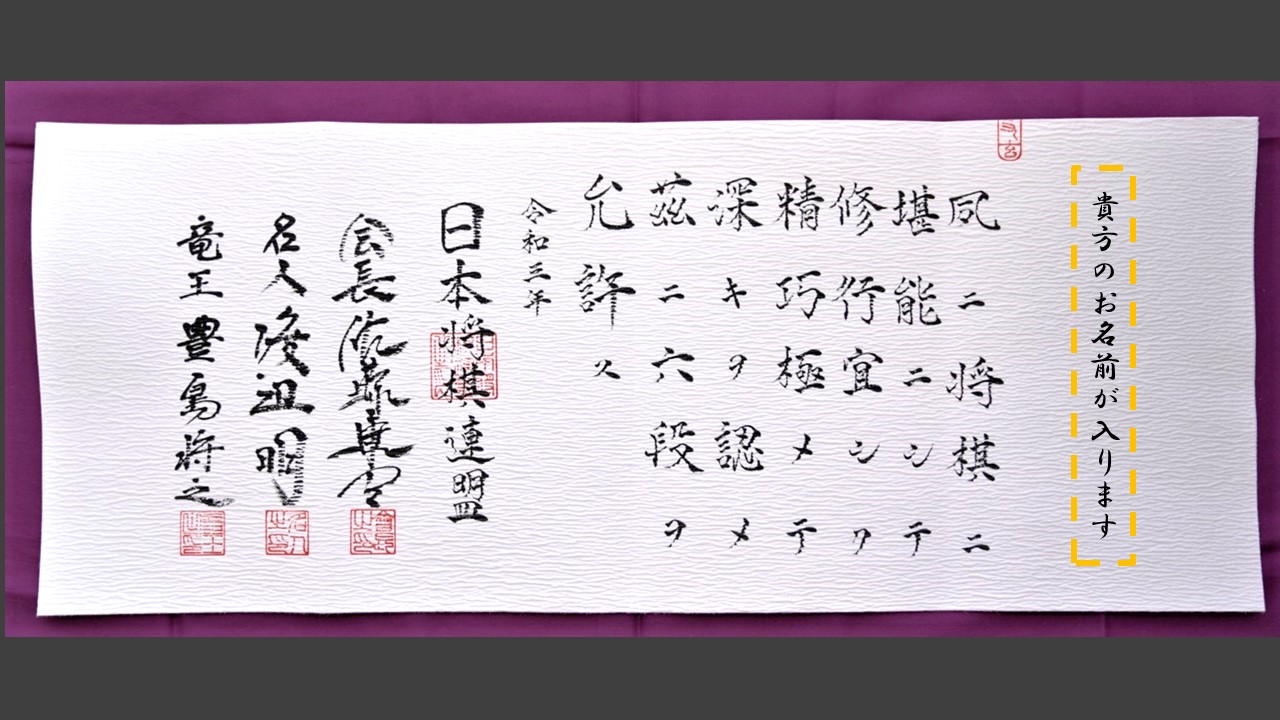 貴方のお名前が入ります
夙ニ将棋ニ
堪能ニシテ
修行宜シク
精巧極メテ
深キヲ認メ
茲ニ六段ヲ
允許ス
令和三年
日本将棋連盟
会長佐藤康光
名人渡辺明
竜王豊島将之